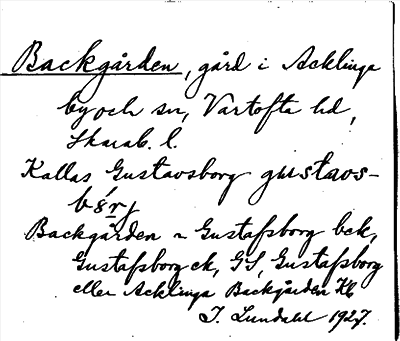 Backgården, gård i Acklinga
by och sn, Vartofta hd,
Skarab. l.
Kallas Gustavsborg gustavs-
Backgården ~ Gustafsborg bck,
Gustafsborg ck, GS, Gustafsborg
eller Acklinga Backgården Hb
I. Lundahl 1927.